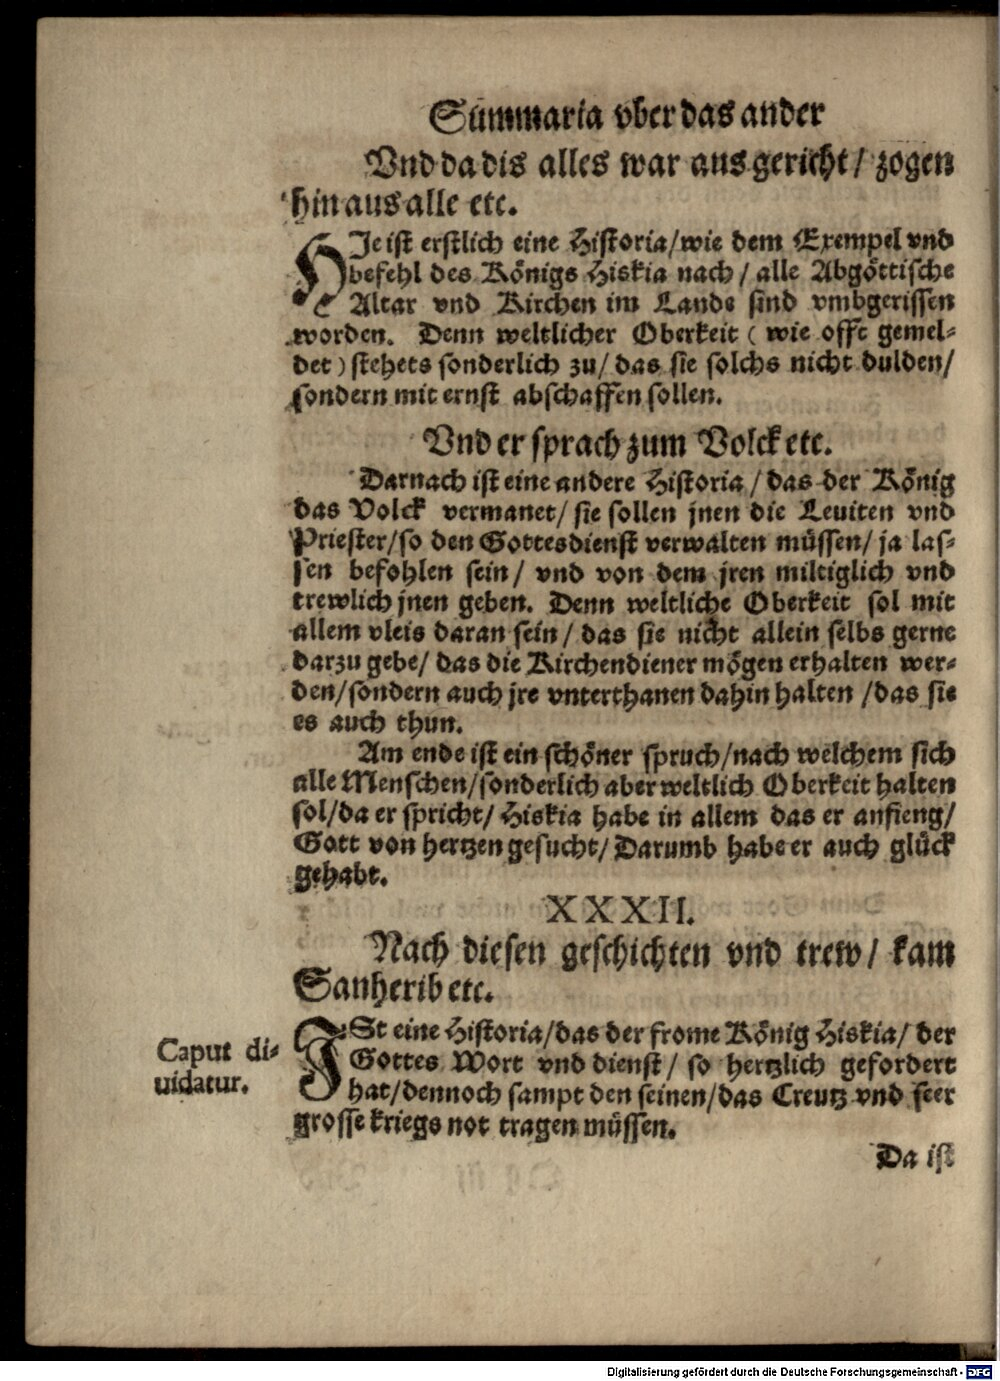 Summaria vber das ander
Vnd da dis alles war ausgericht/ zogen
hin aus alle etc.
HJe ist erstlich eine Historia/wie dem Exempel vnd
befehl des Königs Hiskia nach/ alle Abgöttische
Altar vnd Kirchen im Lande sind vmbgerissen
worden. Denn weltlicher Oberkeit ( wie offt gemel-
det ) stehets sonderlich zu/ das sie solchs nicht dulden/
sondern mit ernst abschaffen sollen.
Vnd er sprach zum Volck etc.
Darnach ist eine andere Historia/ das der König
das Volck vermanet/ sie sollen jnen die Leuiten vnd
Priester/so den Gottesdienst verwalten müssen/ ja las-
sen befohlen sein/ vnd von dem jren miltiglich vnd
trewlich jnen geben. Denn weltliche Oberkeit sol mit
allem vleis daran sein/ das sie nicht allein selbs gerne
darzu gebe/ das die Kirchendiener mögen erhalten wer-
den/sondern auch jre vnterthanen dahin halten /das sie
es auch thun.
Am ende ist ein schöner spruch/nach welchem sich
alle Menschen/sonderlich aber weltlich Oberkeit halten
sol/da er spricht/ Hiskia habe in allem das er anfieng/
Gott von hertzen gesucht/ Darumb habe er auch glück
gehabt.
XXXII.
Nach diesen geschichten vnd trew/ kam
Sanherib etc.
Caput di-
uidatur.
JSt eine Historia/das der frome König Hiskia/ der
Gottes Wort vnd dienst/ so hertzlich gefordert
hat/dennoch sampt den seinen/das Creutz vnd seer
grosse kriegs not tragen müssen.
Da ist
Digitalisierung gefördert durch die Deutsche Forschungsgemeinschaft - DFG